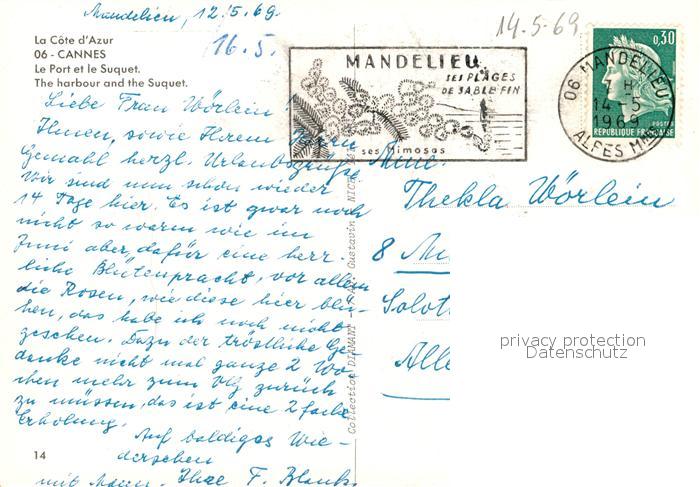 Mandelieu, 12.5.69.
16.5.
14.5.69
La Côte d'Azur
06 - CANNES
Le Port et le Suquet.
The harbour and the Suquet.
MANDELIEU
SES PLAGES
DE SABLE FIN
ses Mimosas
06 MANDELIEU
14-5
1969
ALPES
0,30
POSTES
REPUBLIQUE FRANÇAISE
Liebe Frau Wörlein!
Ihnen, sowie Ihrem Herrn
Gemahl herzl. Urlaubsgrüße.
Wir sind nun schon wieder
14 Tage hier. Es ist zwar noch
nicht so warm wie im
Juni aber dafür eine herr-
liche Blütenpracht, vor allem
die Rosen, wie diese hier blü-
hen, das habe ich noch nicht
gesehen. Dazu der tröstliche Ge-
danke nicht mal ganze 2 Wo-
chen mehr zum VG zurück
zu müssen, das ist eine 2 fache
Erholung.
Auf baldiges Wie-
dersehen
Ihre F.
Mme.
Thekla Wörlein
8
Solot
Alle
privacy protection
Datenschutz
14